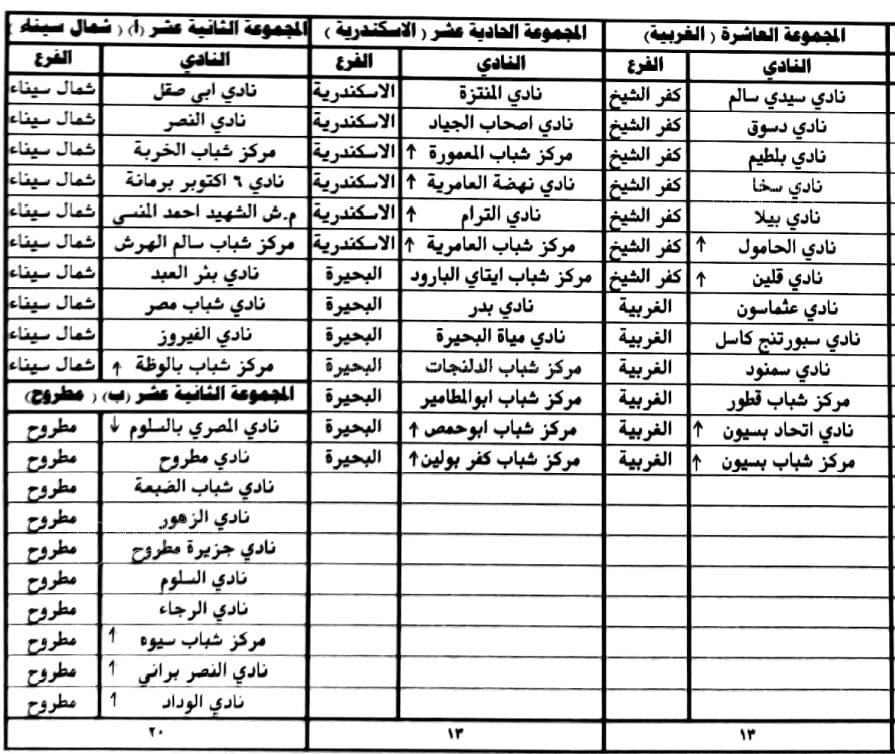 المجموعة العاشرة ( الغربية) المجموعة الحادية عشر ( الاسكندرية ) المجموعة الثانية عشر (أ) ( شمال سيناء )
النادي الفرع النادي الفرع النادي الفرع
نادي سيدي سالم كفر الشيخ نادي المنتزة الاسكندرية نادي ابي صقل شمال سيناء
نادي دسوق كفر الشيخ نادي اصحاب الجياد الاسكندرية نادي النصر شمال سيناء
نادي بلطيم كفر الشيخ مركز شباب المعمورة ↑ الاسكندرية مركز شباب الخربة شمال سيناء
نادي سخا كفر الشيخ نادي نهضة العامرية ↑ الاسكندرية نادي ٦ اكتوبر برمانة شمال سيناء
نادي بيلا كفر الشيخ نادي الترام ↑ الاسكندرية م.ش الشهيد احمد المنسي شمال سيناء
نادي الحامول ↑ كفر الشيخ مركز شباب العامرية ↑ الاسكندرية مركز شباب سالم الهرش شمال سيناء
نادي قلين ↑ كفر الشيخ مركز شباب ايتاي البارود البحيرة نادي بئر العبد شمال سيناء
نادي عثماسون الغربية نادي بدر البحيرة نادي شباب مصر شمال سيناء
نادي سبورتنج كاسل الغربية نادي مياة البحيرة البحيرة نادي الفيروز شمال سيناء
نادي سمنود الغربية مركز شباب الدلنجات البحيرة مركز شباب بالوظة ↑ شمال سيناء
مركز شباب قطور الغربية مركز شباب ابوالمطامير البحيرة المجموعة الثانية عشر (ب) ( مطروح)
نادي اتحاد بسيون ↑ الغربية مركز شباب ابوحمص ↑ البحيرة نادي المصري بالسلوم ↓ مطروح
مركز شباب بسيون ↑ الغربية مركز شباب كفر بولين ↑ البحيرة نادي مطروح مطروح
نادي شباب الضبعة مطروح
نادي الزهور مطروح
نادي جزيرة مطروح مطروح
نادي السلوم مطروح
نادي الرجاء مطروح
مركز شباب سيوه ↑ مطروح
نادي النصر براني ↑ مطروح
نادي الوداد ↑ مطروح
١٣ ١٣ ٢٠